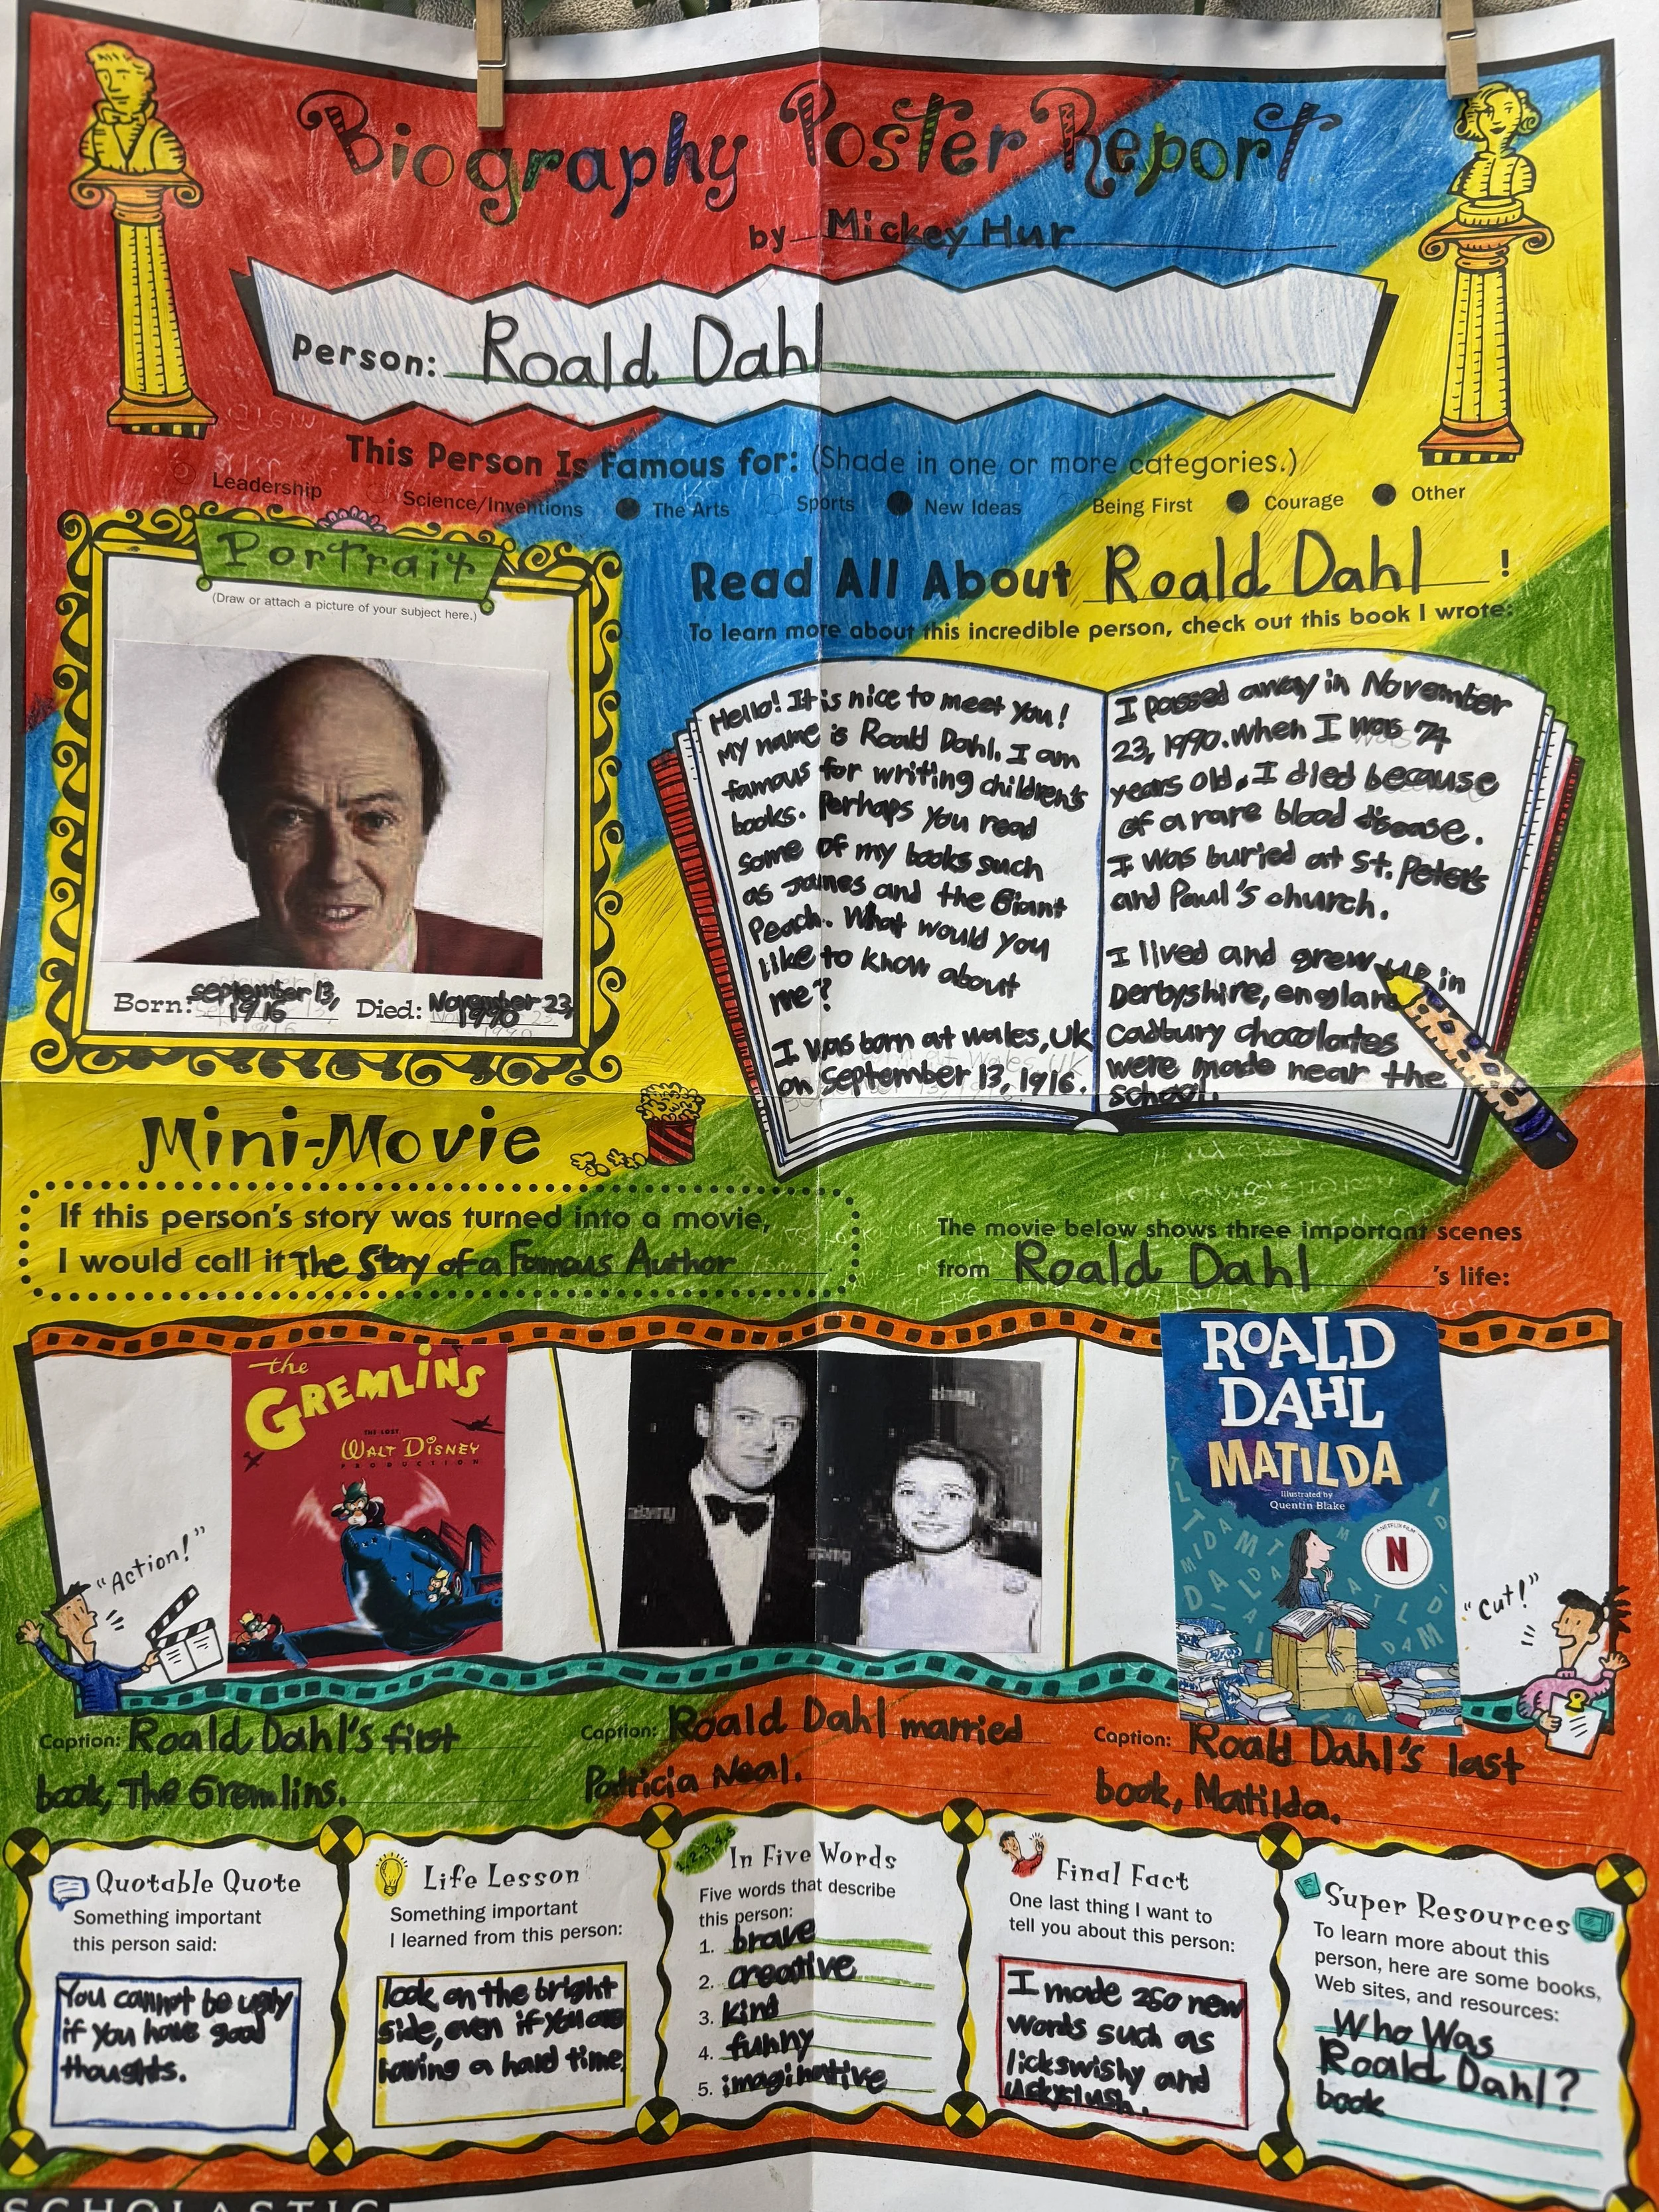 Biography Poster Report
by Mickey Hur
Person: Roald Dahl
This Person Is Famous for: (Shade in one or more categories.)
Leadership Science/Inventions The Arts Sports New Ideas Being First Courage Other
Portrait
(Draw or attach a picture of your subject here.)
Born: September 13,
1916
Died: November 23,
1990
Read All About Roald Dahl !
To learn more about this incredible person, check out this book I wrote:
Hello! It is nice to meet you!
My name is Roald Dahl. I am
famous for writing children's
books. Perhaps you read
some of my books such
as James and the Giant
Peach. What would you
like to know about
me?
I was born at Wales, UK
on September 13, 1916.
I passed away in November
23, 1990. When I was 74
years old. I died because
of a rare blood disease.
I was buried at St. Peter's
and Paul's church.
I lived and grew up in
Derbyshire, england
Cadbury chocolates
were made near the
school.
Mini-Movie
If this person's story was turned into a movie,
I would call it The Story of a Famous Author
The movie below shows three important scenes
from Roald Dahl 's life:
"Action!"
the
GREMLINS
THE LOST
WALT DISNEY
PRODUCTION
alamy
alamy
alamy
alamy
ROALD
DAHL
MATILDA
Illustrated by
Quentin Blake
A NETFLIX FILM
N
"Cut!"
Caption: Roald Dahl's first
book, The Gremlins.
Caption: Roald Dahl married
Patricia Neal.
Caption: Roald Dahl's last
book, Matilda.
Quotable Quote
Something important
this person said:
You cannot be ugly
if you have good
thoughts.
Life Lesson
Something important
I learned from this person:
look on the bright
side, even if you are
having a hard time.
1,2,3,4,5
In Five Words
Five words that describe
this person:
1. brave
2. creative
3. kind
4. funny
5. imaginative
Final Fact
One last thing I want to
tell you about this person:
I made 250 new
words such as
lickswishy and
uckyslush.
Super Resources
To learn more about this
person, here are some books,
Web sites, and resources:
Who Was
Roald Dahl?
book
SCHOLASTIC